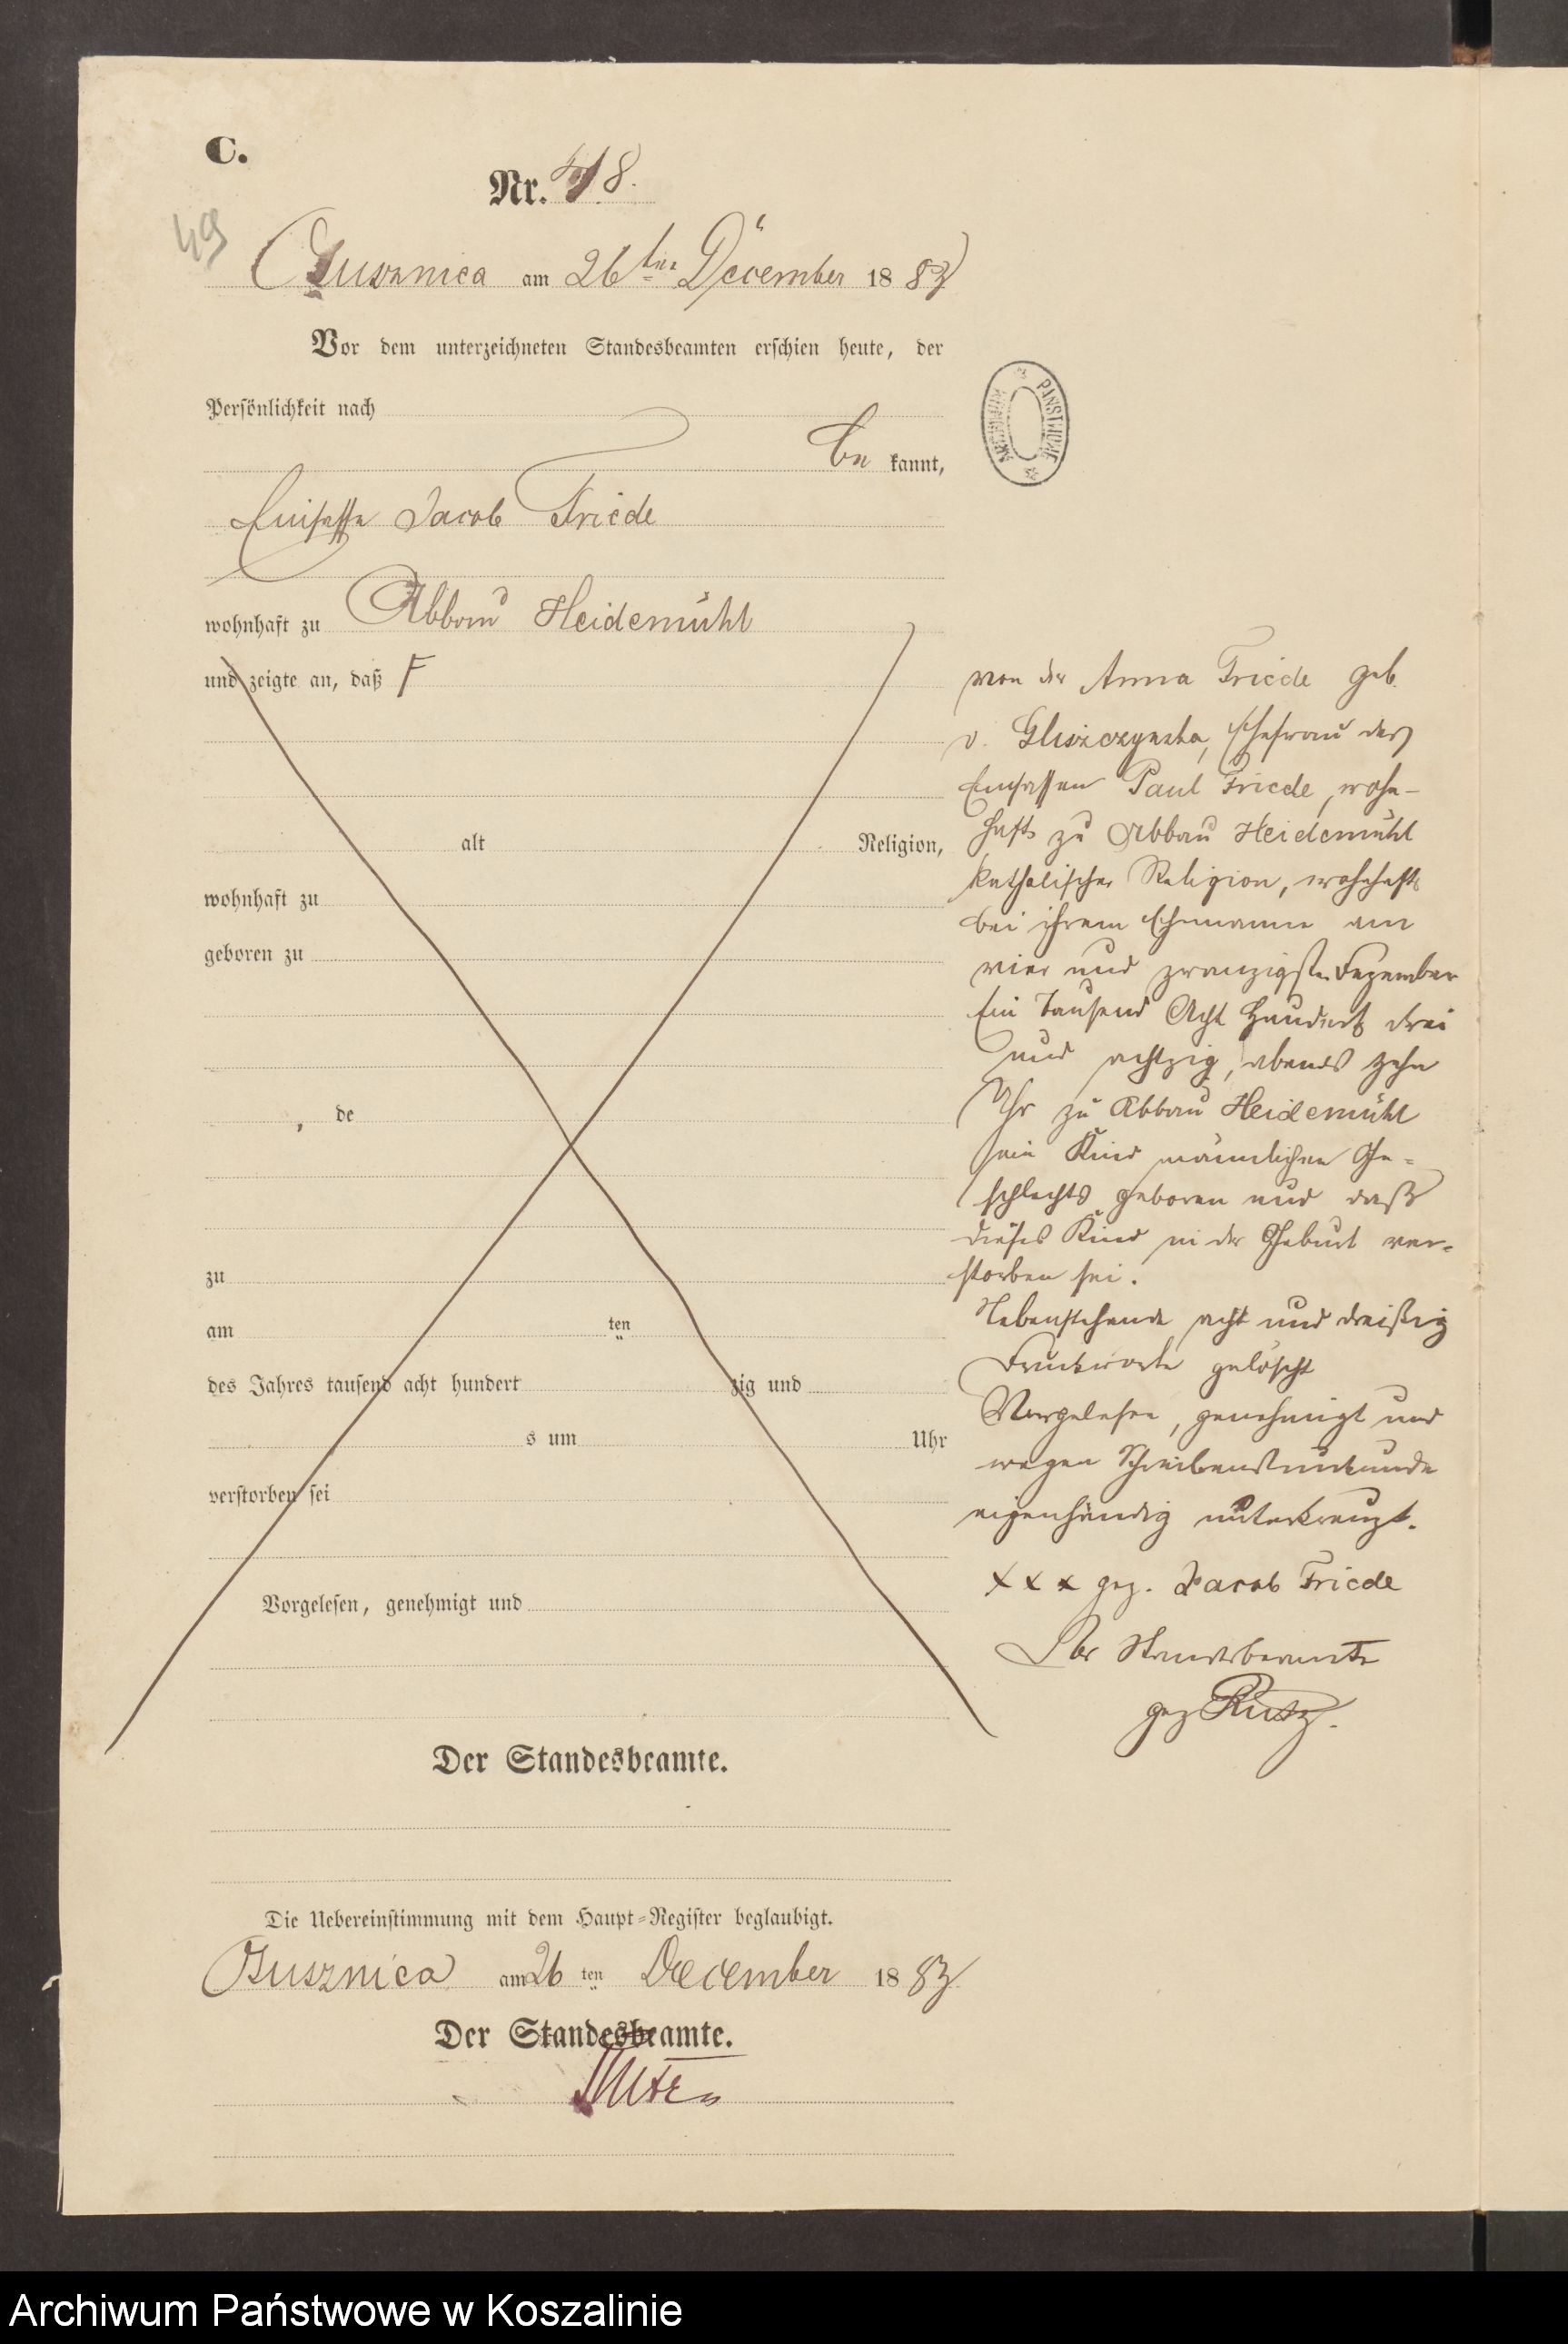 C.
Nr. 48.
49
Gusznica am 26ten December 1883
Vor dem unterzeichneten Standesbeamten erschien heute, der
Persönlichkeit nach
be kannt,
Einsasse Jacob Friede
wohnhaft zu Abbau Heidemühl
und zeigte an, daß F
alt Religion,
wohnhaft zu
geboren zu
, de
zu
am ten
des Jahres tausend acht hundert zig und
s um Uhr
verstorben sei
Vorgelesen, genehmigt und
Der Standesbeamte.
Die Uebereinstimmung mit dem Haupt-Register beglaubigt.
Gusznica am 26 ten December 1883
Der Standesbeamte.
ARCHIWUM PAŃSTWOWE
von der Anna Friede geb.
v. Gliszczynska, Ehefrau des
Einsassen Paul Friede, wohn-
haft zu Abbau Heidemühl
katholischer Religion, wohnhaft
bei ihrem Ehemanne am
vier und zwanzigsten Dezember
Ein Tausend Acht Hundert drei
und achtzig, abends zehn
Uhr zu Abbau Heidemühl
ein Kind männlichen Ge-
schlechts geboren und daß
dieses Kind in der Geburt ver-
storben sei.
Nebenstehende acht und dreißig
Druckworte gelöscht
Vorgelesen, genehmigt und
wegen Schreibensunkunde
eigenhändig unterkreuzt.
x x x gez. Jacob Friede
Der Standesbeamte
gez Rutz.
Archiwum Państwowe w Koszalinie